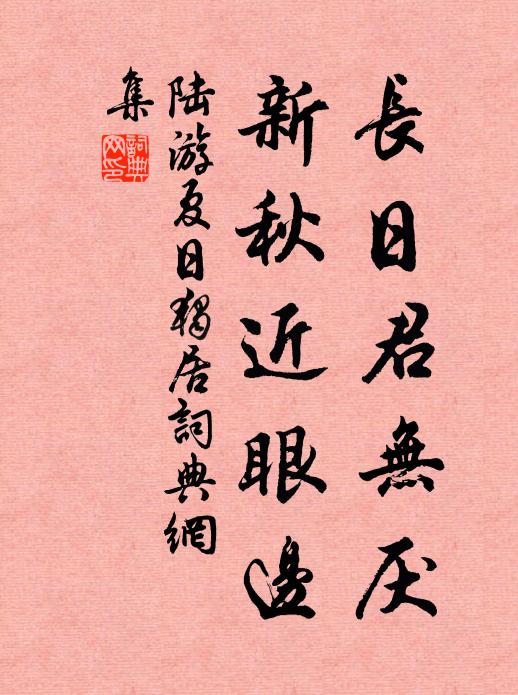 長日君無厌
新秋近眼邊
陆游夏日獨居詞典網
集
詞典网印